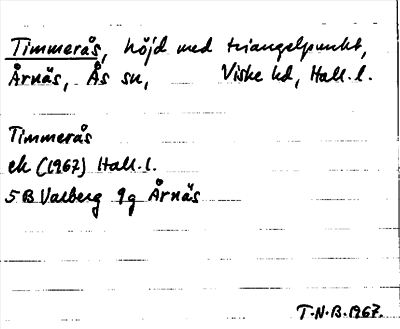 Timmerås, höjd med triangelpunkt,
Årnäs, Ås sn, Viske hd, Hall. l.
Timmerås
ek (1967) Hall. l.
5B Varberg 9g Årnäs
T.N.B. 1967.